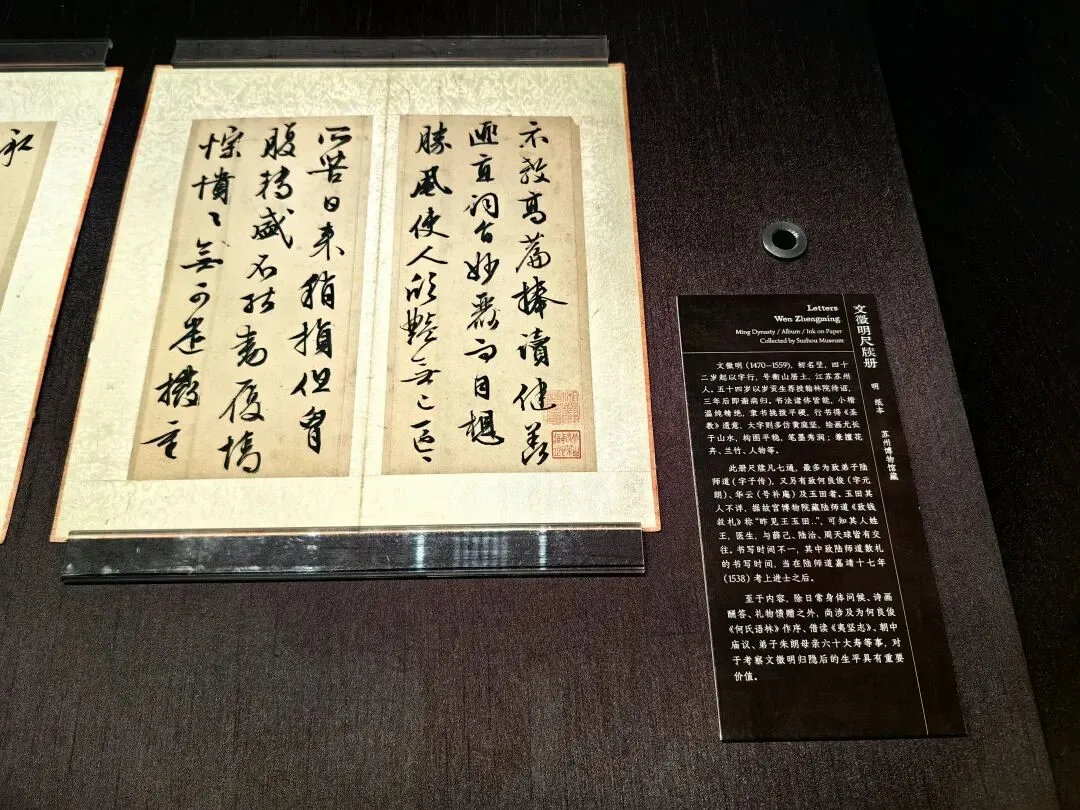 示教高篇捧讀健羨
匪直詞旨妙麗而目想
勝風使人欣艷無已區〻
所苦日来稍損但胃
悰憒〻無可遣撥
和
文徵明尺牍册
明 纸本 苏州博物馆藏
Letters
Wen Zhengming
Ming Dynasty / Album / Ink on Paper
Collected by Suzhou Museum
文徵明（1470—1559），初名壁，四十
二岁起以字行，号衡山居士，江苏苏州
人。五十四岁以岁贡生荐授翰林院待诏，
三年后即谢病归。书法诸体皆能，小楷
温纯精绝，隶书挑拨平硬，行书得《圣
教》遗意，大字则多仿黄庭坚，绘画尤长
于山水，构图平稳，笔墨秀润；兼擅花
卉、兰竹、人物等。
此册尺牍凡七通，最多为致弟子陆
师道（字子传），又另有致何良俊（字元
朗）、华云（号补庵）及玉田者。玉田其
人不详，据故宫博物院藏陆师道《致钱
榖札》称“昨见王玉田..”，可知其人姓
王，医生，与薛己、陆治、周天球皆有交
往。书写时间不一，其中致陆师道数札
的书写时间，当在陆师道嘉靖十七年
（1538）考上进士之后。
至于内容，除日常身体问候、诗画
酬答、礼物馈赠之外，尚涉及为何良俊
《何氏语林》作序、借读《夷坚志》、朝中
庙议、弟子朱朗母亲六十大寿等事，对
于考察文徵明归隐后的生平具有重要
价值。